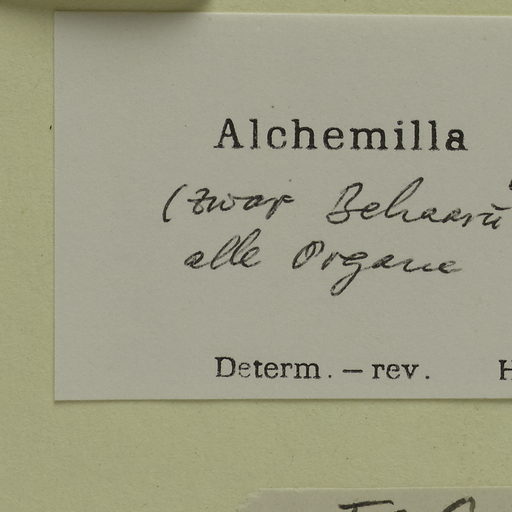 Alchemilla
(zwar Behaarū
alle Organe
Determ. — rev. H